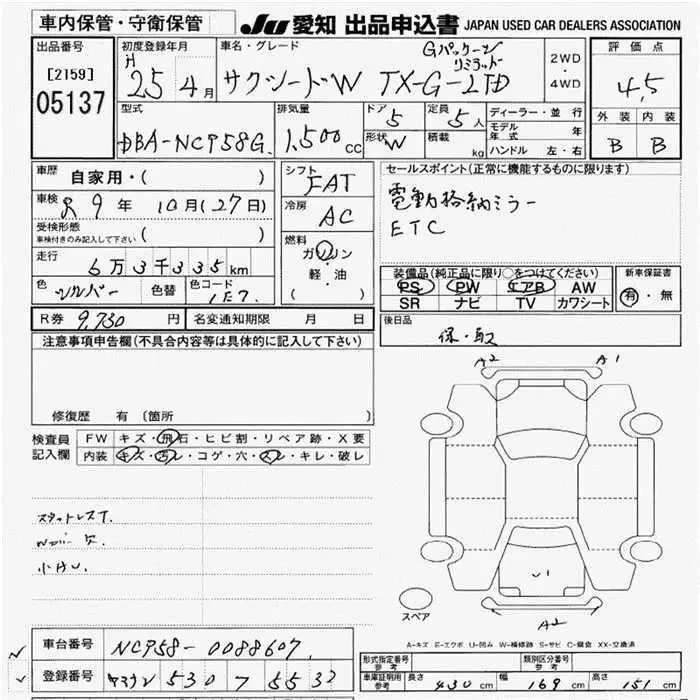 車内保管・守衛保管
JU 愛知 出品申込書 JAPAN USED CAR DEALERS ASSOCIATION
出品番号
[2159]
05137
初度登録年月
H 25年 4月
車名・グレード
Gパッケージ
リミテッド
サクシードW TX-G-LTD
2WD
・
4WD
評価点
4.5
外装 内装
B B
型式
DBA-NCP58G
排気量
1,500cc
ドア 5
形状 W
定員 5人
積載 kg
ディーラー・並行
モデル年式 年
ハンドル 左・右
車歴
自家用・( )
車検 9年 10月(27日)
受検形態
車検付きのみ記入して下さい ( )
走行
6万3千335km
色 シルバー 色替 色コード 1E7
シフト FAT
冷房 AC
燃料
ガソリン
軽・油
( )
セールスポイント(正常に機能するものに限ります)
電動格納ミラー
ETC
装備品(純正品に限り○をつけてください)
PS PW エアB AW
SR ナビ TV カワシート
新車保証書
有・無
R券 9,730円 名変通知期限 月 日
後日品
保・取
注意事項申告欄(不具合内容等は具体的に記入して下さい)
修復歴 有 〔箇所
検査員記入欄
FW キズ・飛石・ヒビ割・リペア跡・X要
内装 キズ・汚レ・コゲ・穴・スレ・キレ・破レ
スタットレスT.
小キU.
A2 A1
U1
A2
スペア
A-キズ E-エクボ U-凹み W-補修跡 S-サビ C-腐食 XX-交換済
車台番号 NCP58-0088607
登録番号 530 7 5532
形式指定番号 参考
類別区分番号 参考
車庫証明用 参考 長さ 430cm 幅 169cm 高さ 151cm